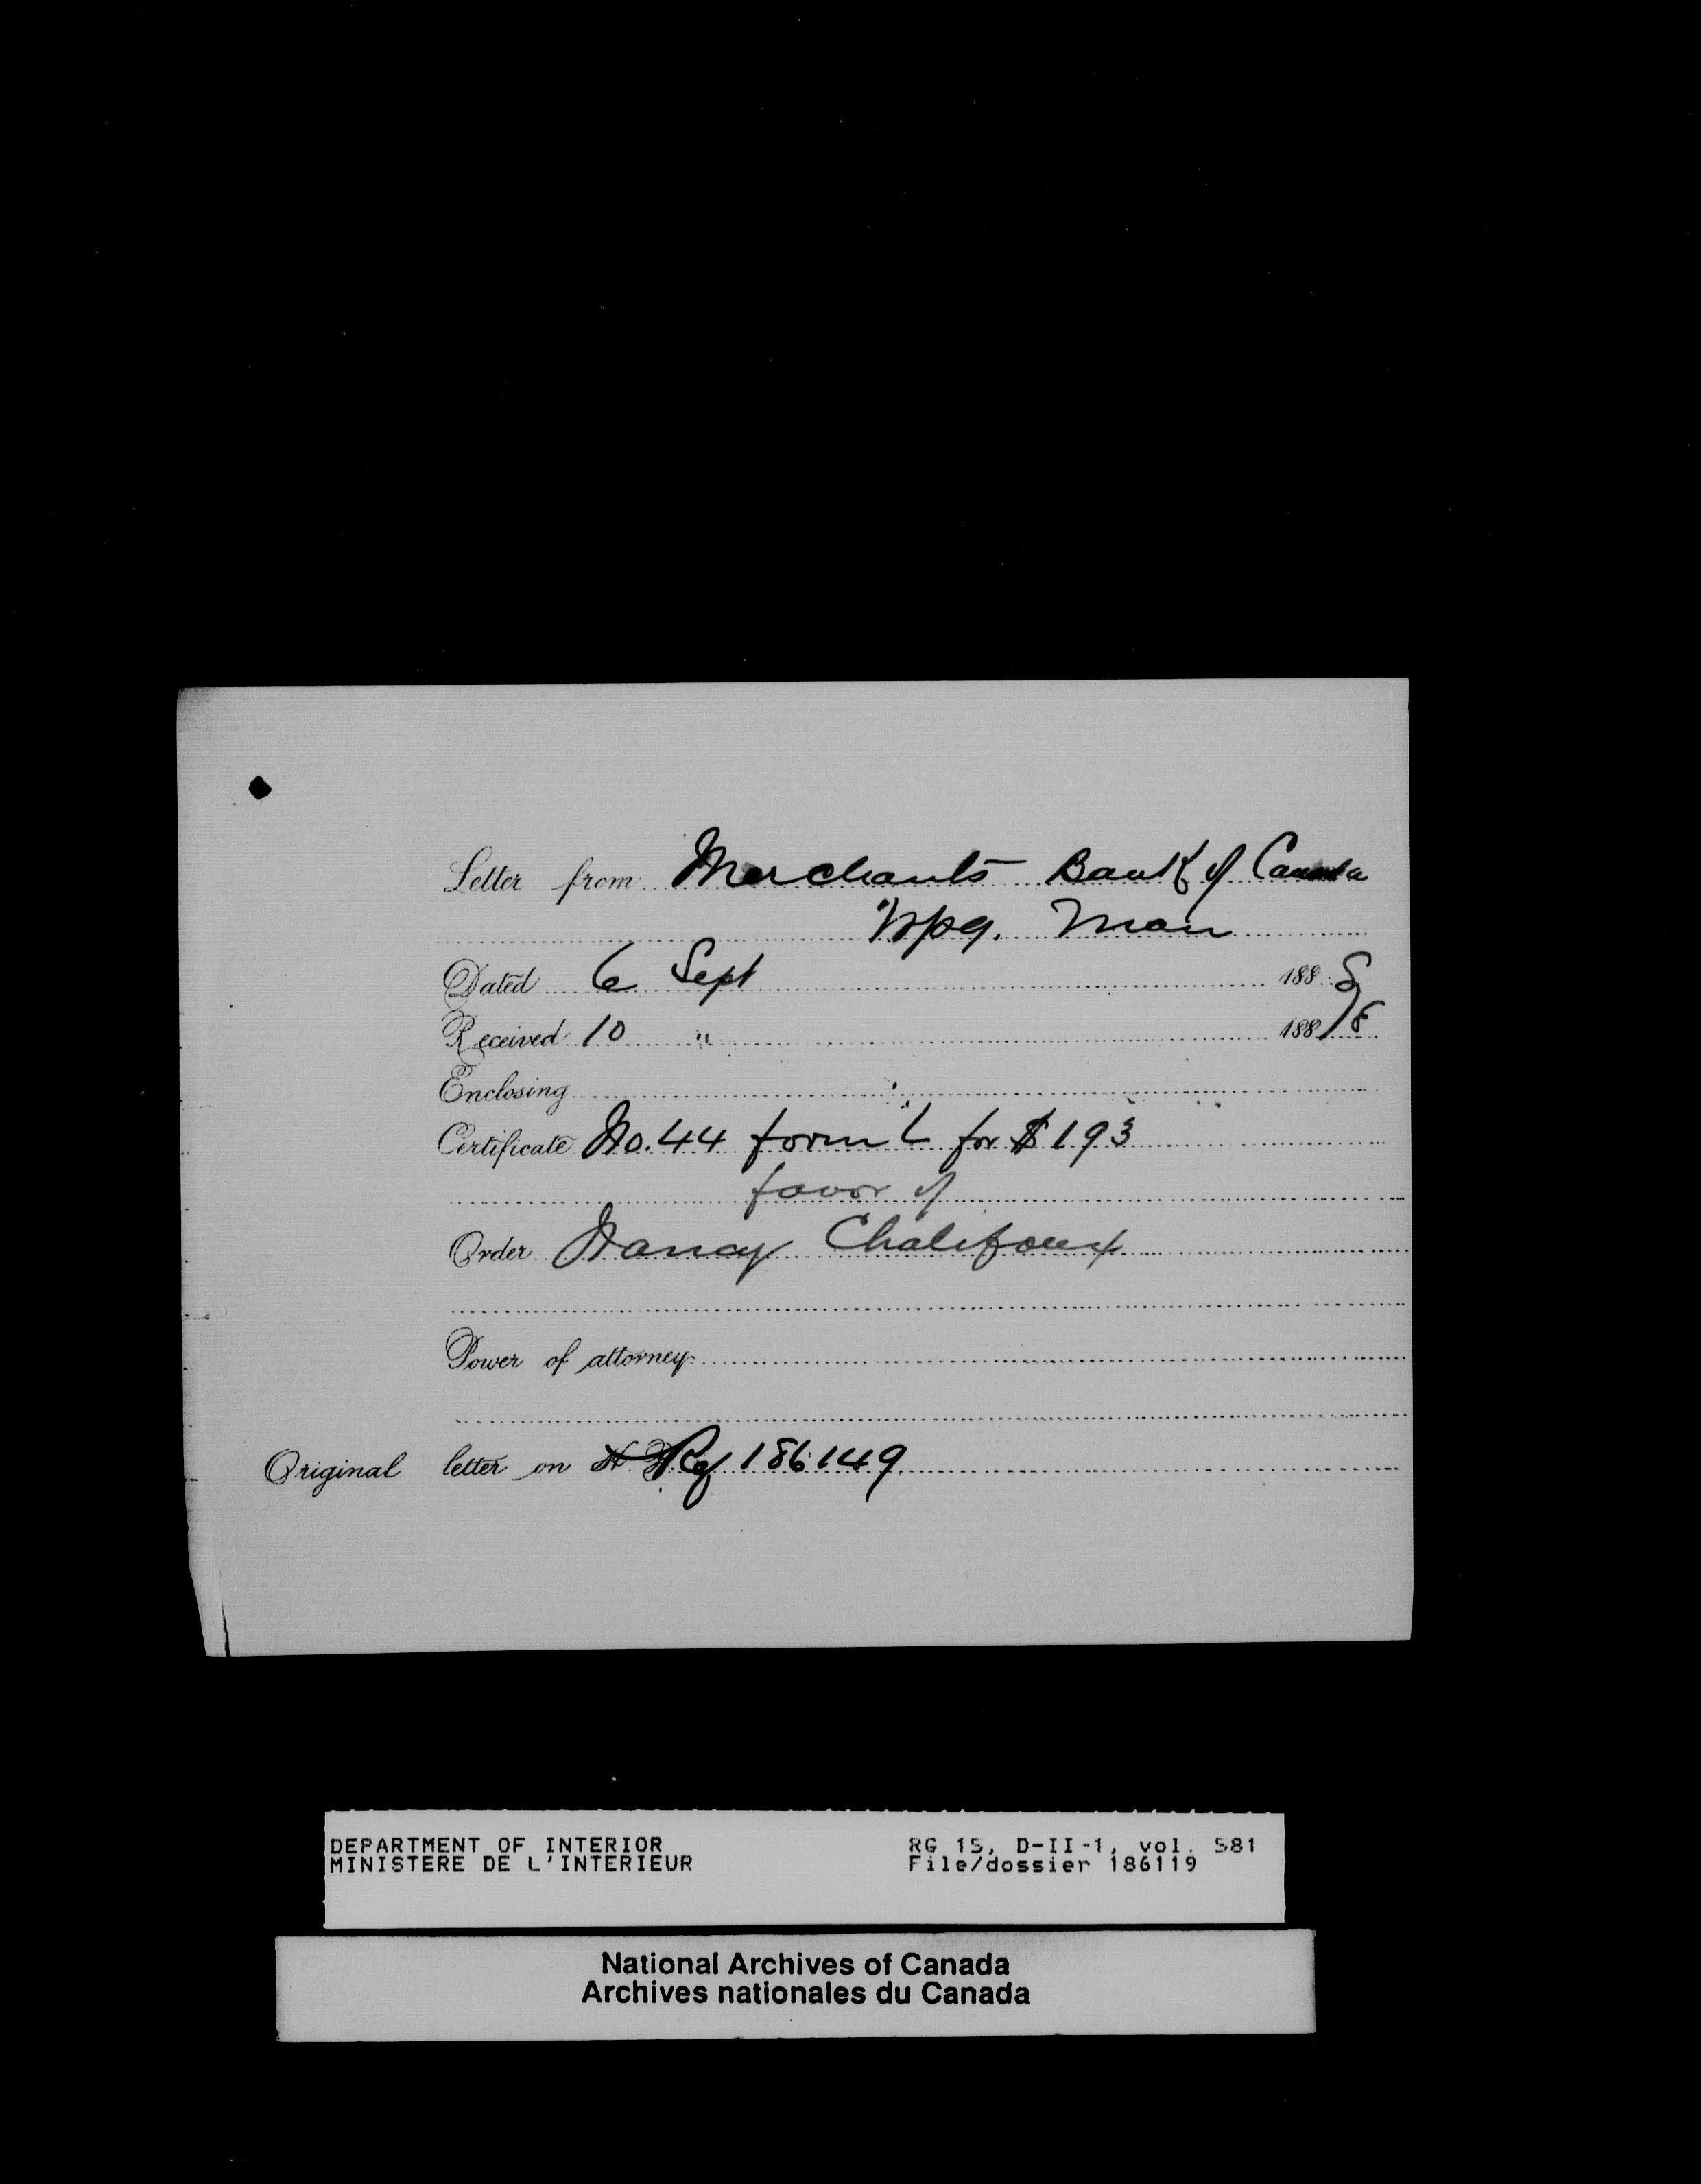 Letter from Merchants Bank of Canada
Wpg. Man
Dated 6 Sept 188
Received 10 " 188 8
Enclosing
Certificate No. 44 form L for $193
favor of
Order Nancy Chalifoux
Power of attorney
Original letter on Ref 186149
DEPARTMENT OF INTERIOR RG 15, D-II-1, vol. 581
MINISTERE DE L'INTERIEUR File/dossier 186119
National Archives of Canada
Archives nationales du Canada